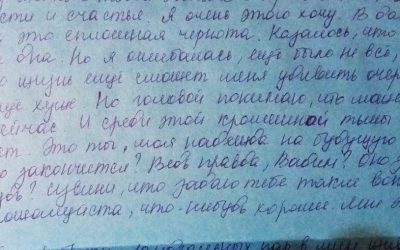 сти и счастье. Я очень этого хочу. В
это сплошная чернота. Казалось, что
дна. Но я ошибалась, ещё было не всё,
о жизнь ещё сможет меня удивить
ещё хуже. Но головой понимаю, что
сейчас. И среди этой крошечной тьмы
ет. Это ты, моя надежда на будущую
о закончится? Ведь правда, Вадим?
Извини, что задаю тебе такие
пожалуйста, что-нибудь хорошее. Мне